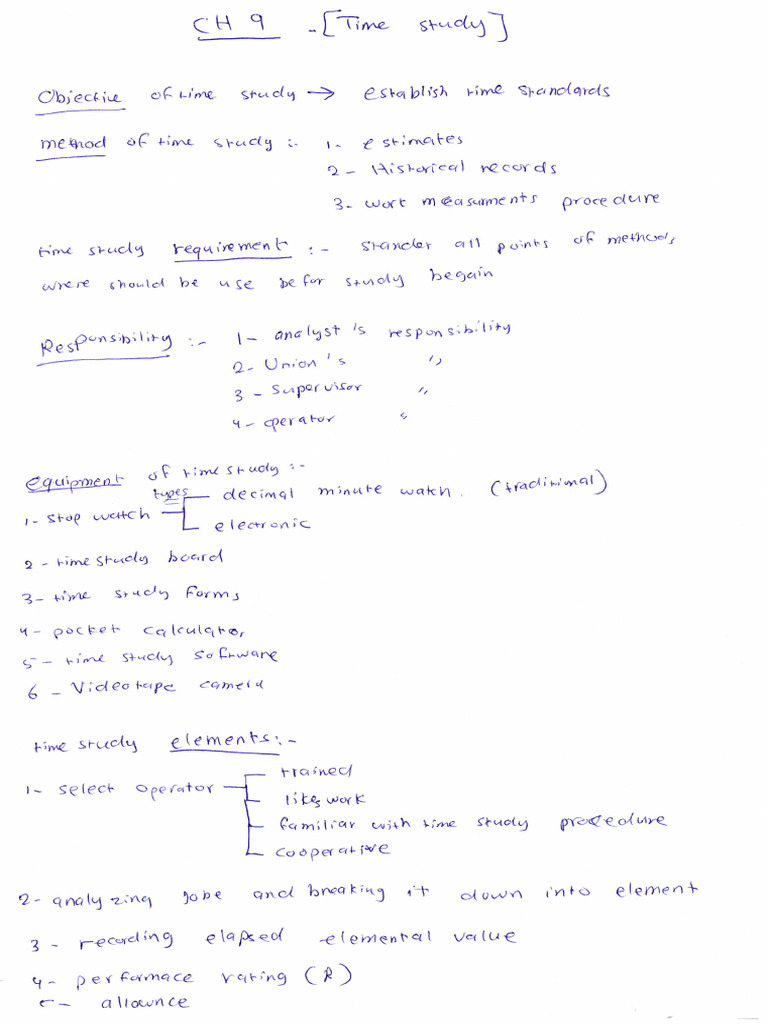 CH 9 - [Time study]
Objective of time study → establish time standards
method of time study :- 1- estimates
2- Historical records
3- work measurments procedure
time study requirement :- stander all points of methods
where should be use befor study begain
Responsibility :- 1- analyst's responsibility
2- Union's "
3- Supervisor "
4- operator "
equipment of time study :-
types decimal minute watch. (traditional)
1- stop watch
electronic
2- time study board
3- time study forms
4- pocket calculator
5- time study software
6- Videotape camera
time study elements :-
trained
1- select operator
likes work
familiar with time study procedure
cooperative
2- analyzing jobe and breaking it down into element
3- recording elapsed elemental value
4- performace rating (R)
5- allownce